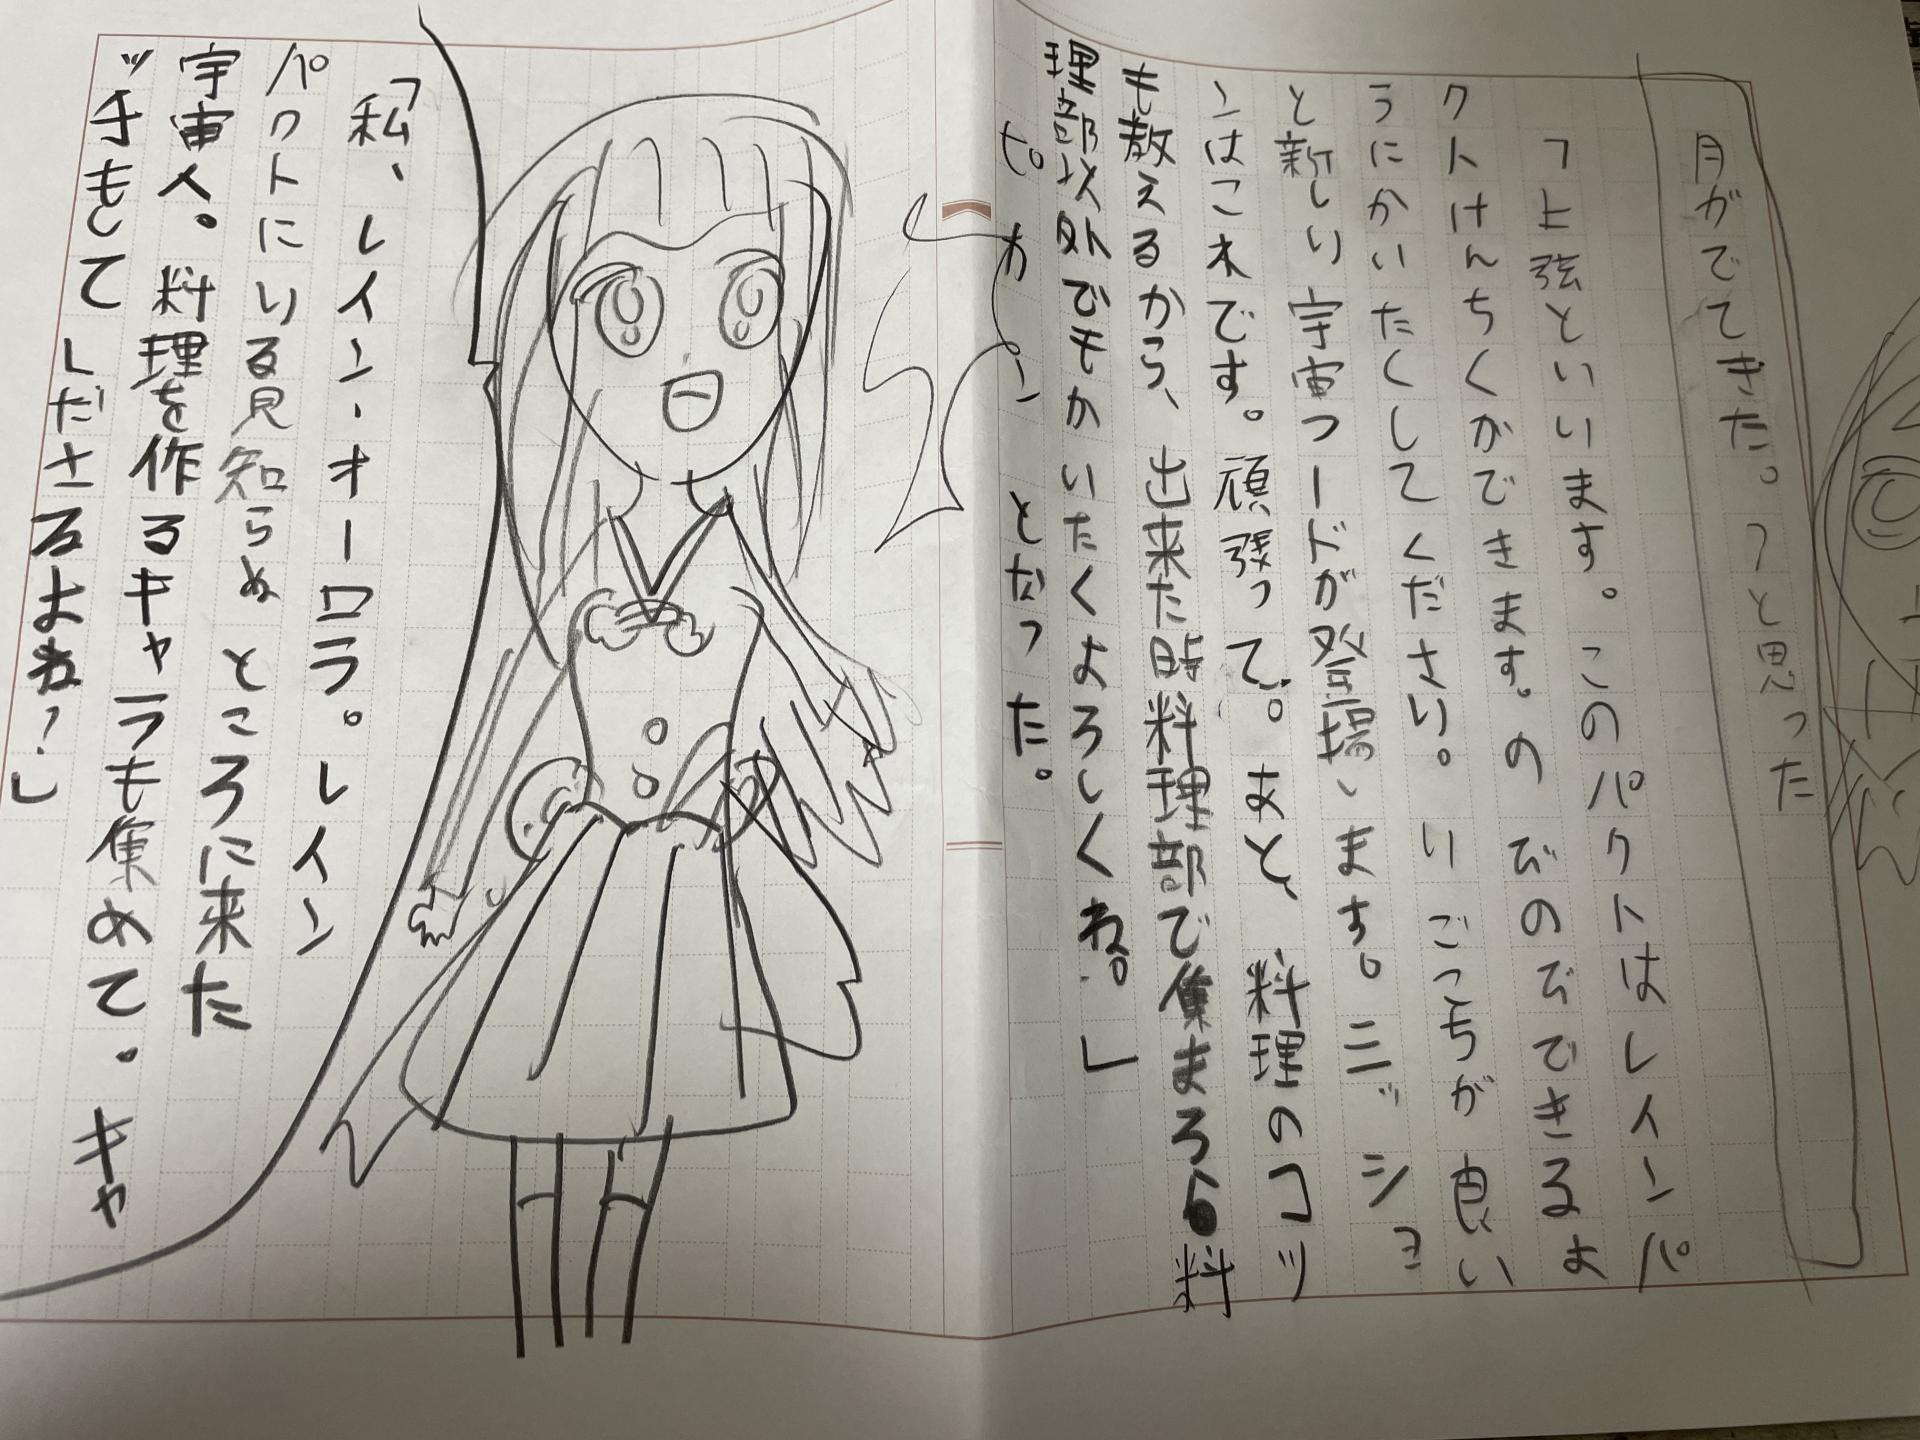 月がでてきた。フと思った
「上弦といいます。このパクトはレインパ
クトけんちくかできます。のびのびできるよ
うにかいたくしてください。いごこちが良い
と新しい宇宙フードが登場します。ミッショ
ンはこれです。頑張って。あと、料理のコツ
も教えるから、出来た時料理部で集まろう料
理部以外でもかいたくよろしくね。」
ピカーンとだった。
「私、レイン・オーロラ。レイン
パクトにいる見知らぬところに来た
宇宙人。料理を作るキャラも集めて。キャ
ッ手もしてしださるよね?」